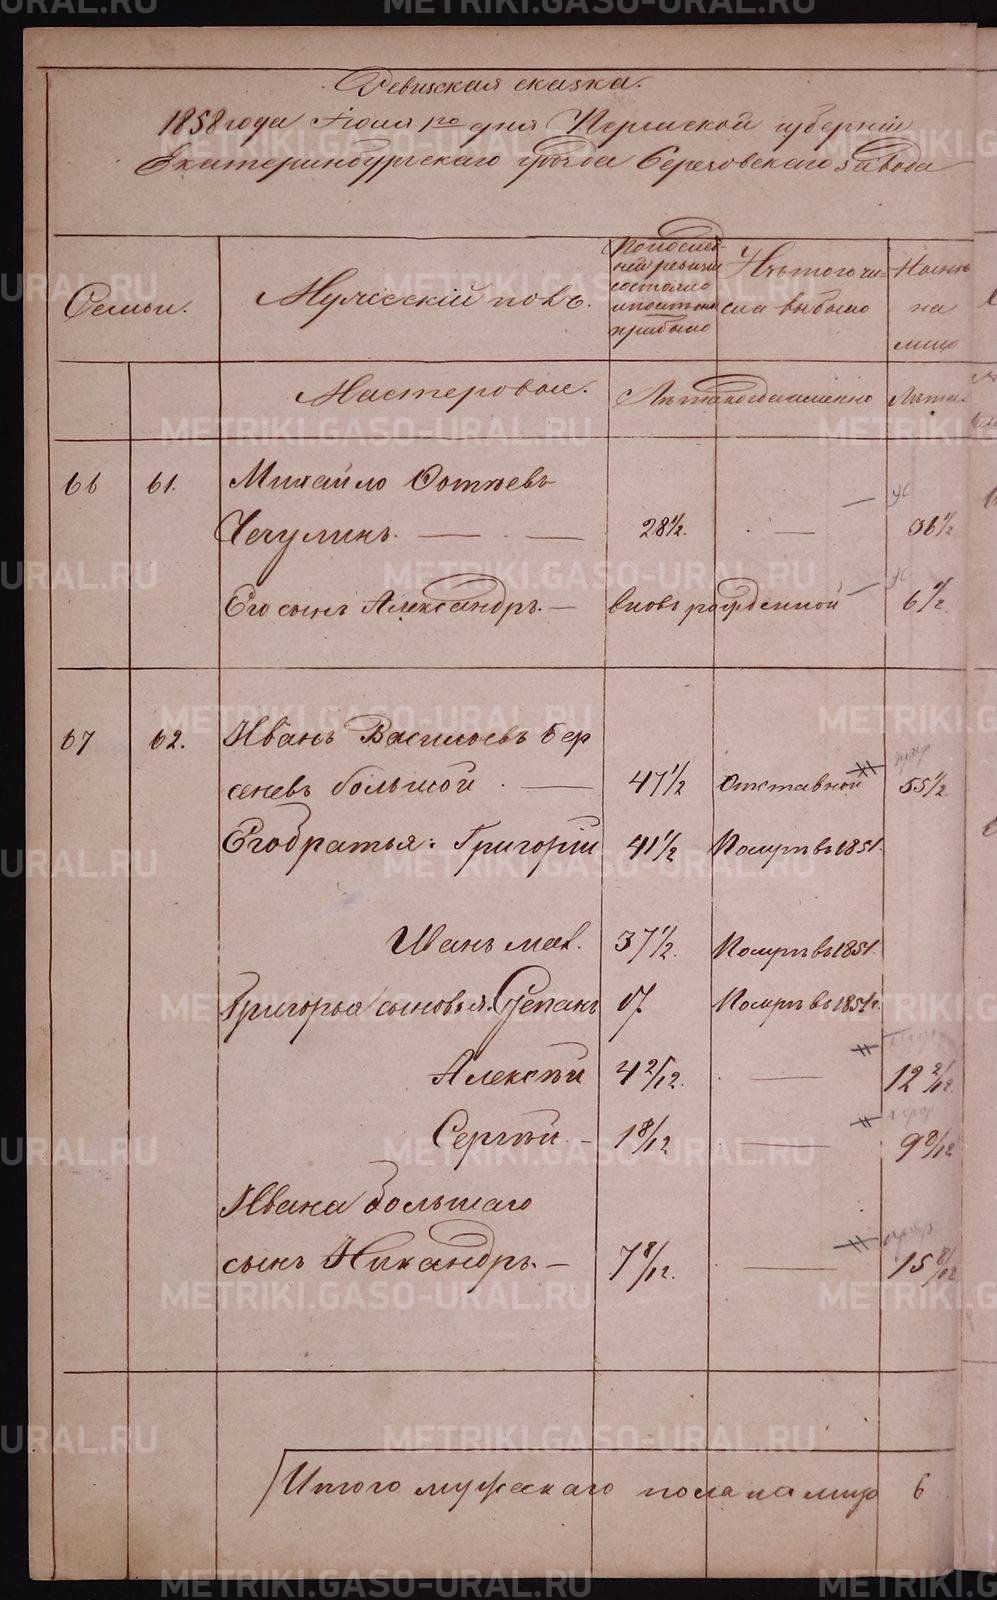 Ревизская сказка.
1858 года Июля 1го дня Пермской губерніи
Екатеринбургскаго уѣзда Березовскаго завода
Семьи.
Мужескій полъ.
По послѣд-
ней ревизіи
состояло
и послѣ того
прибыло
Изъ того чи-
сла выбыло
Нынѣ
на
лицо
Мастеровые.
Лѣта
когда именно
Лѣта.
66 61. Михайло
Чечулинъ. 28 1/2. 36 1/2
Его сынъ Александръ. вновь рожденной 6 1/2
67 62. Иванъ Васильевъ Бер
сеневъ большой 47 1/2 Отставной 55 1/2.
Его братья: Григорій 41 1/2 Померъ въ 1851.
Иванъ мал. 37 1/2. Померъ въ 1851.
Григорья сыновья: Степанъ 17. Померъ въ 1851г.
Алексѣй 4 2/12. 12 2/12.
Сергѣй 1 8/12 9 8/12
Ивана большаго
сынъ Никандръ. 7 8/12. 15 8/12
Итого мужескаго пола на лицо 6
METRIKI.GASO-URAL.RU